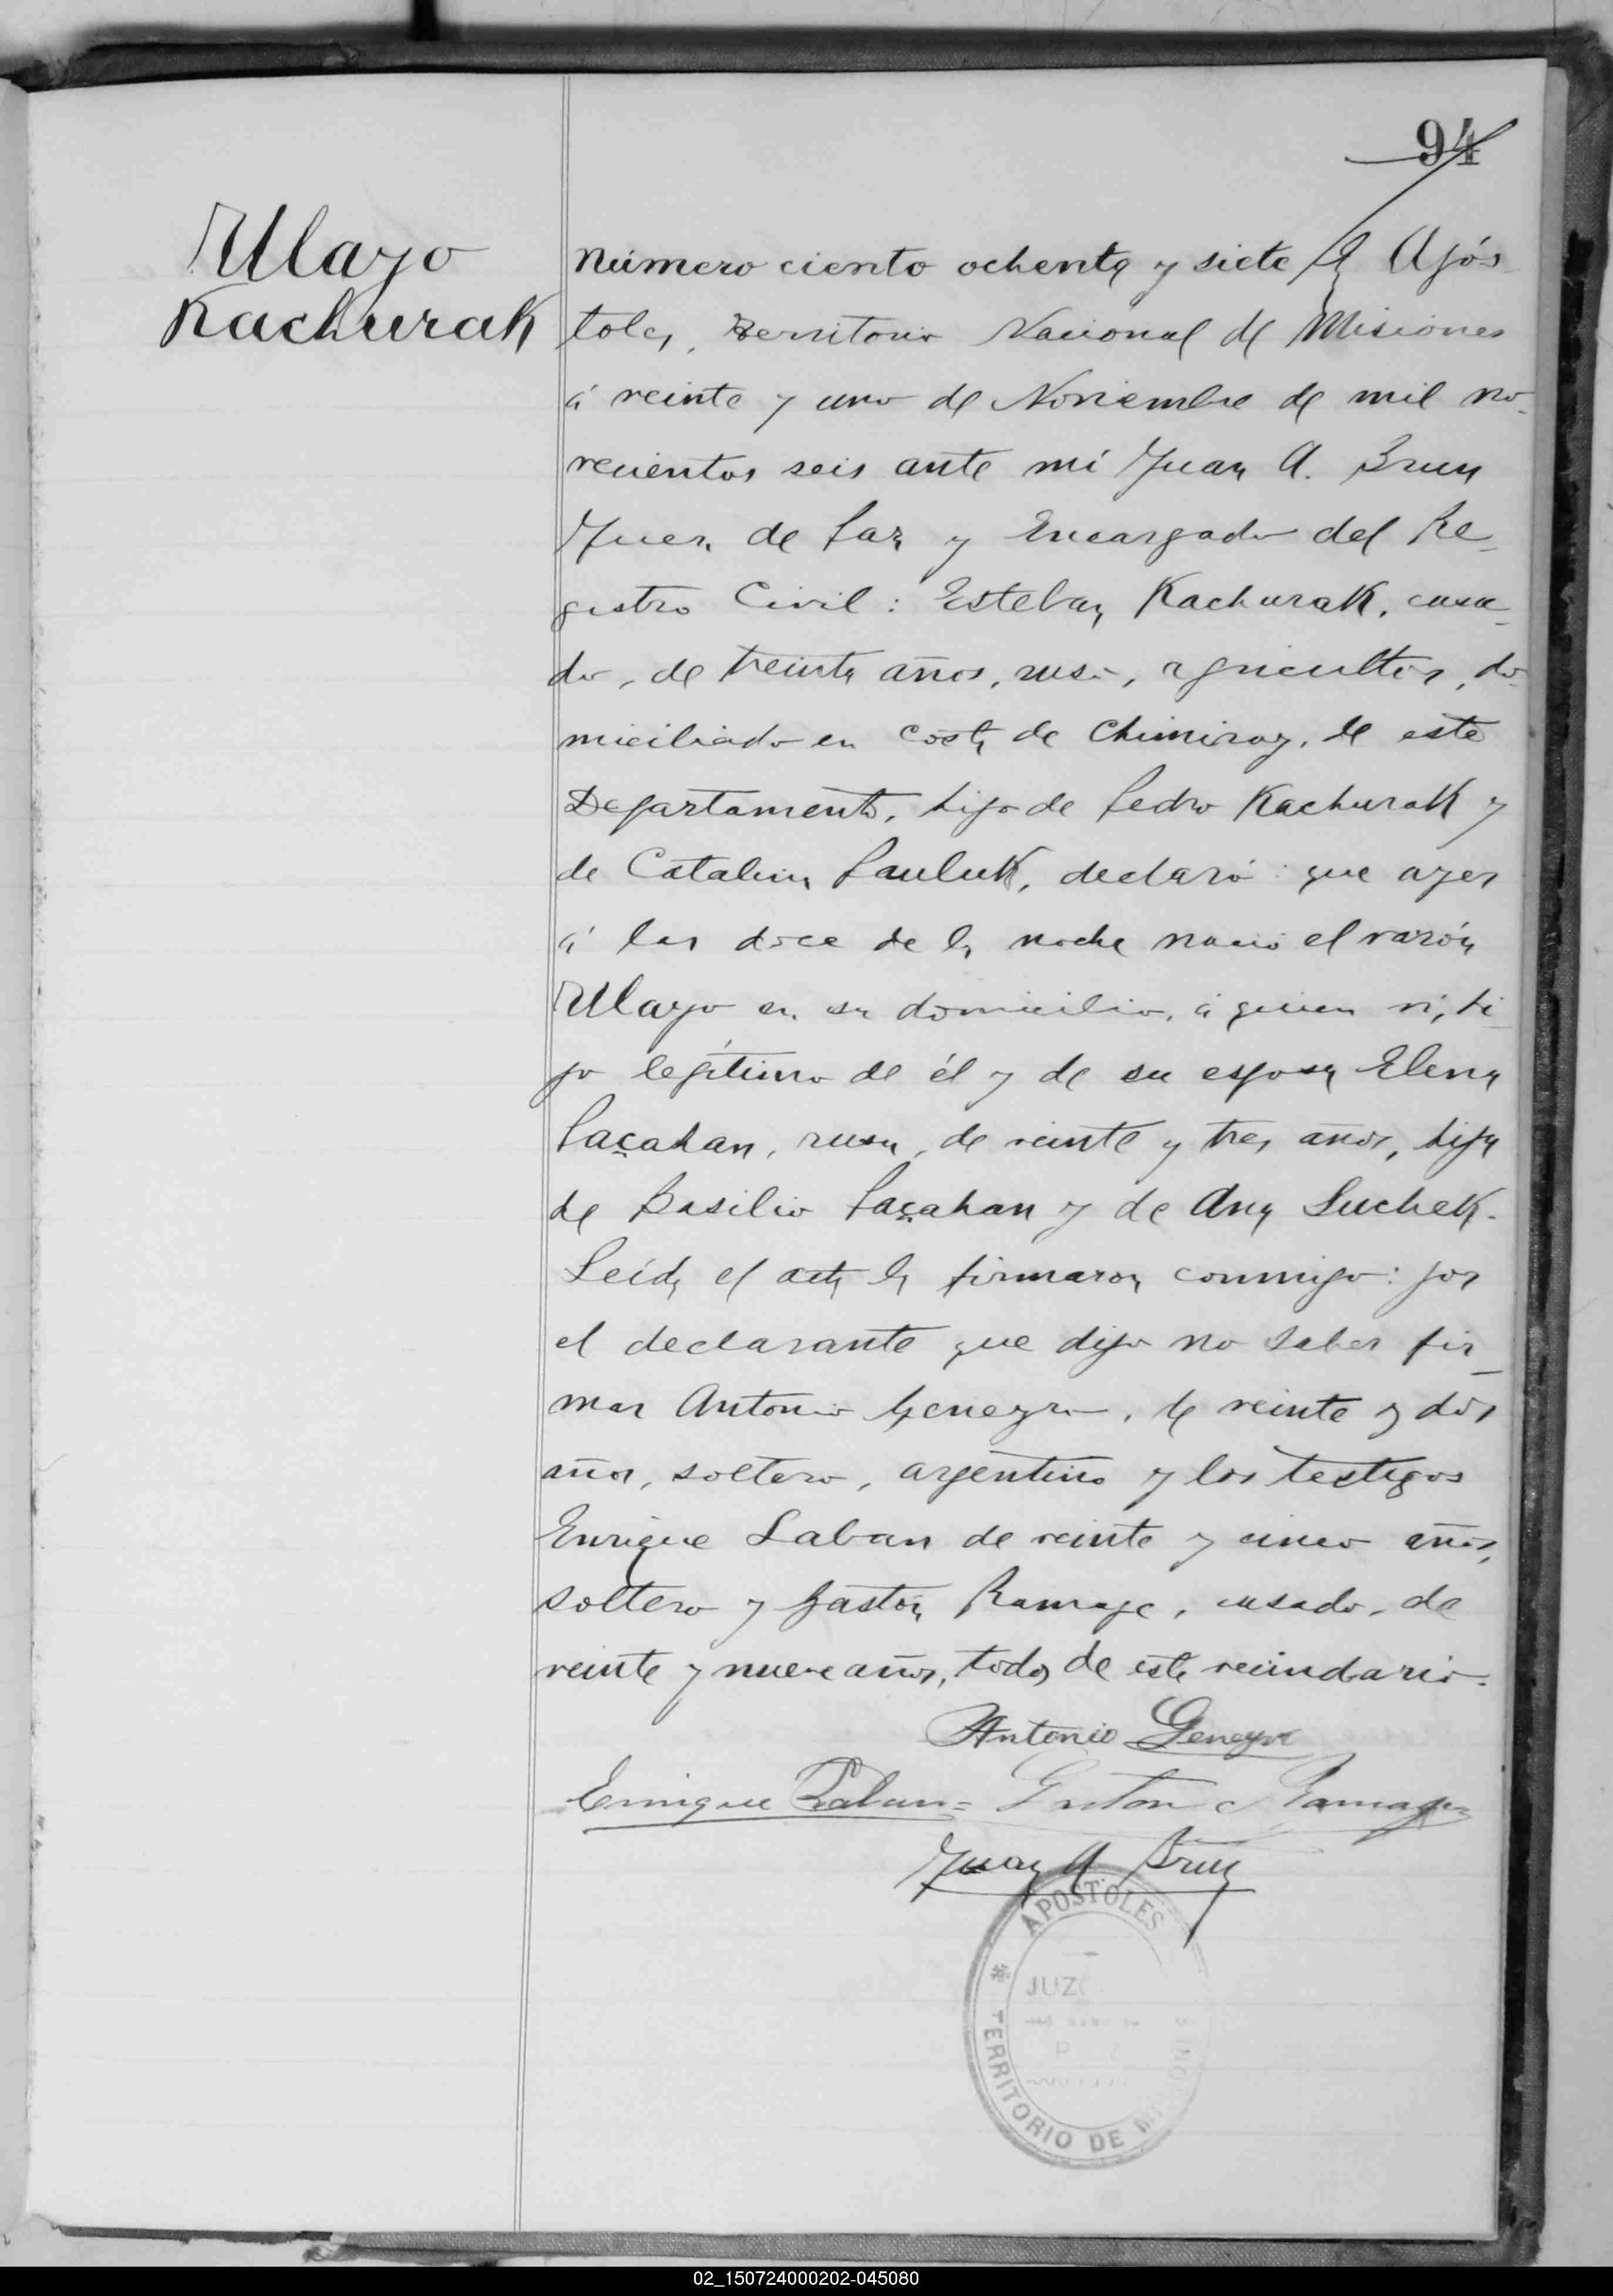 94
Ulayo
Kachurak
Número ciento ochenta y siete En Após-
toles, Territorio Nacional de Misiones
á veinte y uno de Noviembre de mil no-
vecientos seis ante mí Juan A. Brun
Juez de Paz y Encargado del Re-
gistro Civil: Esteban Kachurak, casa-
do, de treinta años, ruso, agricultor, do-
miciliado en costa de Chimiray, de este
Departamento, hijo de Pedro Kachurak y
de Catalina Pauluk, declaró: que ayer
á las doce de la noche nació el varón
Ulayo en su domicilio, á quien ví, hi-
jo legítimo de él y de su esposa Elena
Paçahan, rusa, de veinte y tres años, hija
de Basilio Paçahan y de Ana Luchek.
Leída el acta la firmaron conmigo: por
el declarante que dijo no saber fir-
mar Antonio Geneyro, de veinte y dos
años, soltero, argentino y los testigos
Enrique Laban de veinte y cinco años,
soltero y Gastón Ramage, casado, de
veinte y nueve años, todos de este vecindario.
Antonio Geneyro
Enrique Laban= Gaston Ramage
Juan A Brun
APOSTOLES
JUZ
TERRITORIO DE M
02_150724000202-045080